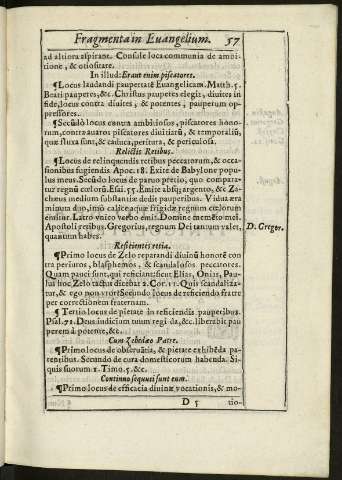 Fragmenta in Euangelium. 57
ad altiora aspirant. Consule loca communia de ambi-
tione, & otiositate.
In illud: Erant enim piscatores.
¶Locus laudandi paupertatē Euangelicam. Matth. 5.
Beati pauperes, &c. Christus pauperes elegit, diuites in
fide, locus contra diuites, & potentes, pauperum op-
pressores.
¶Secūdò locus contra ambitiosos, piscatores hono-
rum, contra auaros piscatores diuitiarū, & temporaliū,
quæ fluxa sunt, & caduca, peritura, & periculosa.
Relictis Retibus.
¶Locus de relinquendis retibus peccatorum, & occa-
sionibus fugiendis Apoc. 18. Exite de Babylone popu-
lus meus. Secūdò locus de paruo pretio, quo compara-
tur regnū cœlorū. Esai. 55. Emite absq; argento, & Za-
cheus medium substantiæ dedit pauperibus. Vidua æra
minuta duo, imò calice aquæ frigidæ regnum cœlorum
emitur. Latro vnico verbo emit. Domine memēto mei.
Apostoli retibus. Gregorius, regnum Dei tantum valet,
quantum habes.
D. Gregor.
Reficientes retia.
¶Primo locus de Zelo reparandi diuinū honorē con
tra periuros, blasphemos, & scandalosos peccatores.
Quam pauci sunt, qui reficiant: sicut Elias, Onias, Pau-
lus hoc Zelo tactus dicebat 2. Cor. 11. Quis scandaliza-
tur, & ego non vror? Secundo locus de reficiendo fratre
per correctionem fraternam.
¶Tertio locus de pietate in reficiendis pauperibus.
Psal. 71. Deus iudicium tuum regi da, &c. liberabit pau
perem à potente, &c.
Cum Zebedæo Patre.
¶Primo locus de obseruātia, & pietate exhibēda pa-
rentibus. Secundo de cura domesticorum habenda. Si
quis suorum 1. Timo. 5. &c.
Continuo sequuti sunt eum.
¶Primo locus de efficacia diuinæ vocationis, & mo-
D 5 tio-